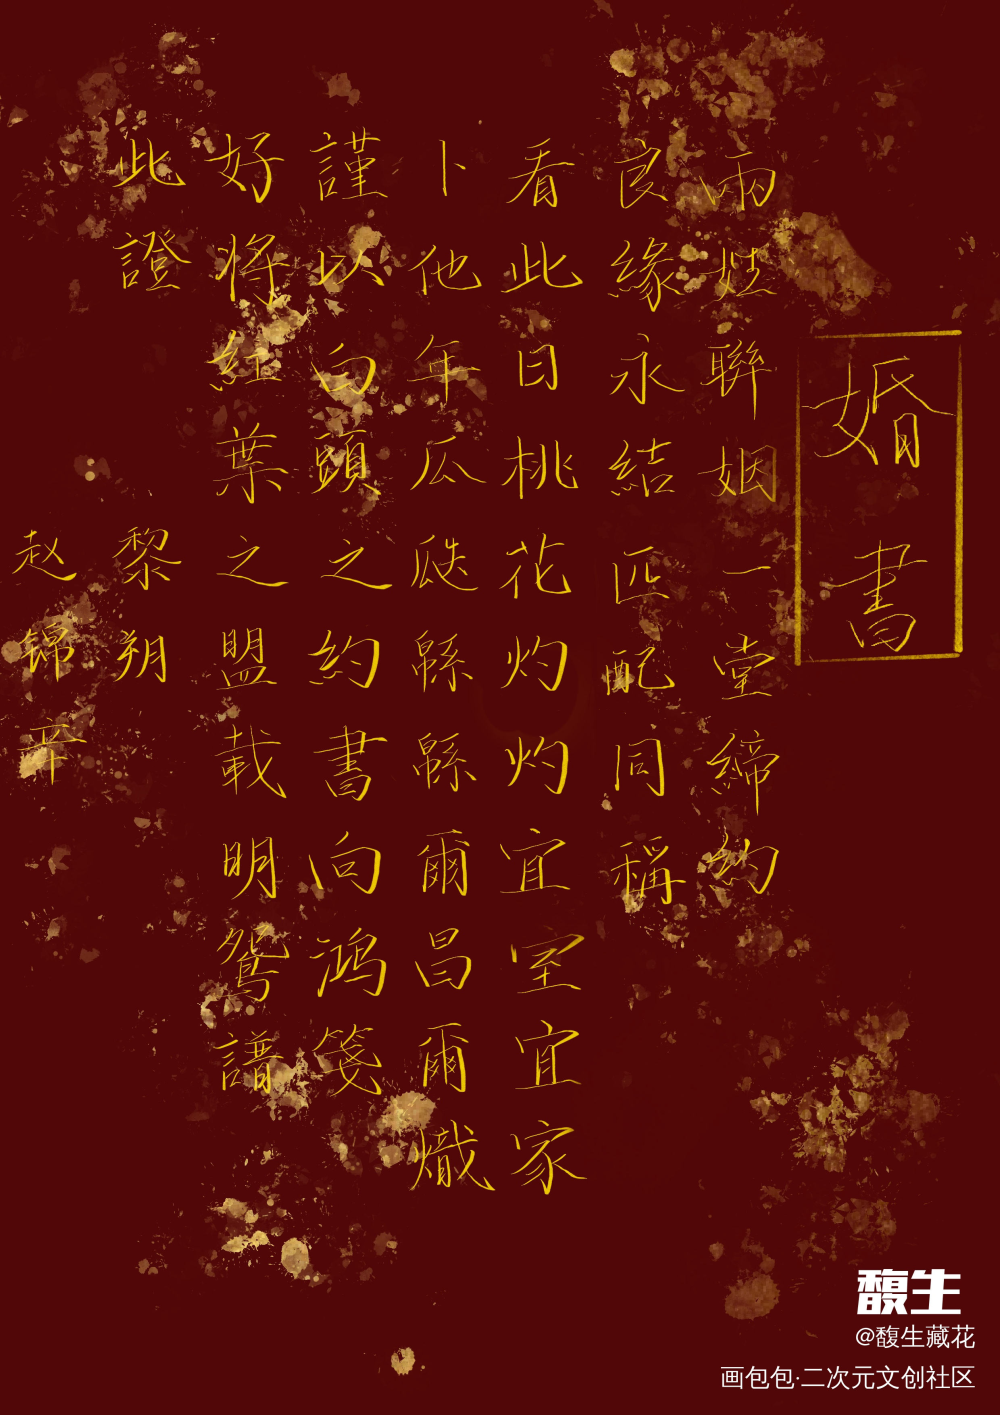 婚書
兩姓聯姻一堂締約
良緣永結匹配同稱
看此日桃花灼灼宜室宜家
卜他年瓜瓞緜緜爾昌爾熾
謹以白頭之約書向鴻箋
好將紅葉之盟載明鴛譜
此證
黎朔
赵锦辛
馥生
@馥生藏花
画包包·二次元文创社区